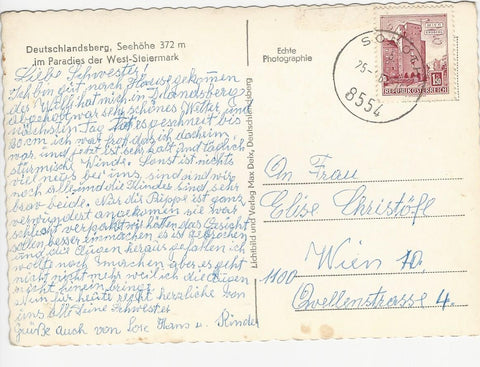 Deutschlandsberg, Seehöhe 372 m
im Paradies der West-Steiermark
Echte
Photographie
Liebe Schwester!
Ich bin gut nach Hause gekommen
der Willi hat mich in Dlandsberg
abgeholt war sehr schönes Wetter und
nächsten Tag hat es geschneit bis
30 cm ich war froh das ich daheim
war und jetzt ist sehr kalt und täglich
stürmische Winde. Sonst ist nichts
viel neues bei uns sind
noch alle und die Kinder sind sehr
brav beide. Nur die Puppe ist ganz
verwundert angekommen sie war
schlecht verpackt wir hätten das Gesicht
sollen besser einmachen is gebrochen
und die Augen heraus gefallen ich
wollte noch machen aber es geht
nicht mehr weil ich die Augen
nicht hinein bringe.
Nun für heute recht herzliche von
uns alle Deine Schwester
Grüße auch von Hans u. Kinder
Lichtbild und Verlag Max Deix, Deutschlandsberg
REPUBLIK ÖSTERREICH
8554
An Frau
Elise Christöfl
Wien 10.
1100
Quellenstrasse 4.